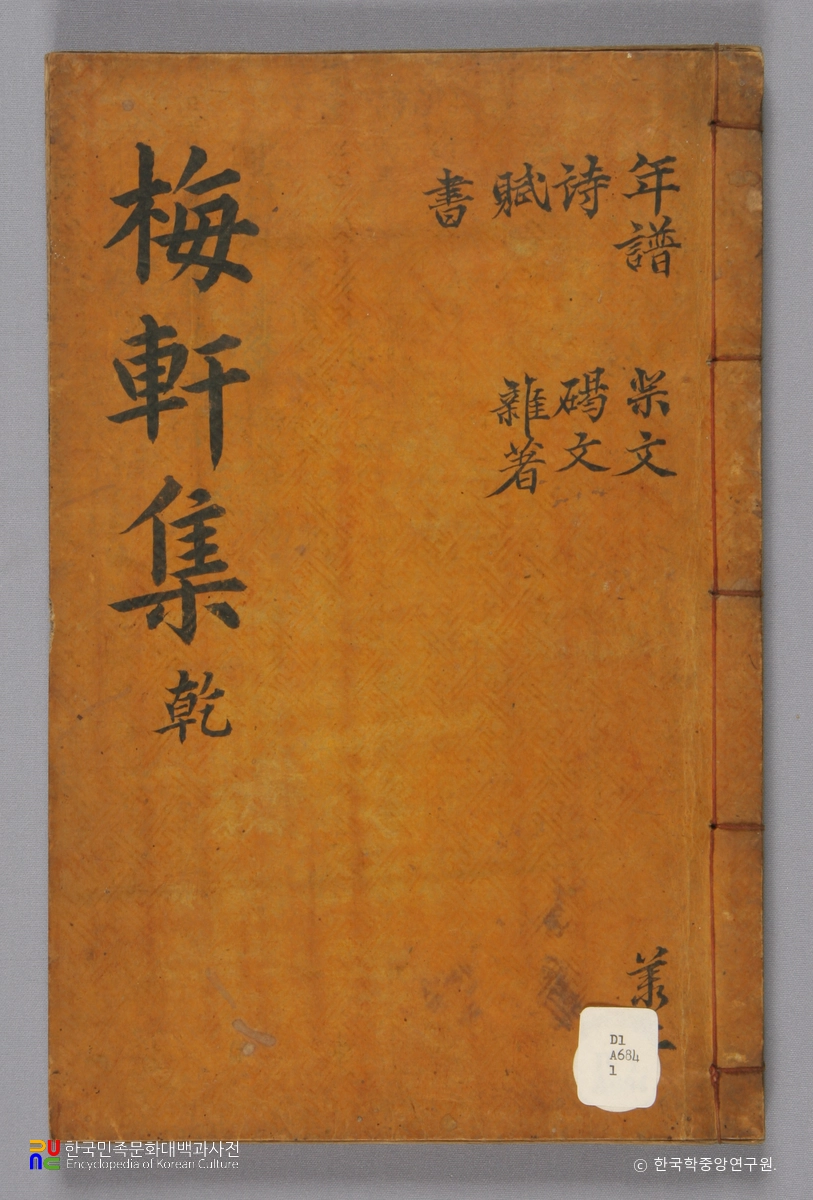 年譜
詩
賦
書
祭文
碣文
雜著
梅軒集 乾
D1
A684
1
한국민족문화대백과사전
Encyclopedia of Korean Culture
© 한국학중앙연구원.